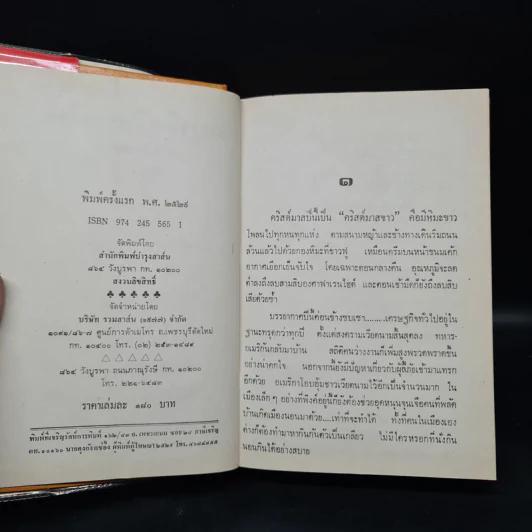 พิมพ์ครั้งแรก พ.ศ. ๒๕๒๙
ISBN 974 245 565 1
จัดพิมพ์โดย
สำนักพิมพ์บำรุงสาส์น
วังบูรพา กท. ๑๐๒๐๐
สงวนลิขสิทธิ์
♣ ♣ ♣ ♣ ♣
จัดจำหน่ายโดย
บริษัท รวมสาส์น (๑๙๗๗) จำกัด
ศูนย์การค้าเมโทร ถ.เพชรบุรีตัดใหม่
กท. ๑๐๔๐๐ โทร. (๐๒)
△ △ △ △ △
วังบูรพา ถนนภาณุรังษี กท. ๑๐๒๐๐
โทร.
ราคาเล่มละ ๑๘๐ บาท
พิมพ์ที่
๑
คริสต์มาสปีนี้เป็น “คริสต์มาสขาว” คือมีหิมะขาว
โพลนไปทุกหนทุกแห่ง ตามสนามหญ้าและข้างทางเดินริมถนน
ล้วนแล้วไปด้วยกองหิมะที่ขาวฟู เหมือนครีมบนหน้าขนมเค้ก
อากาศเยือกเย็นจับใจ โดยเฉพาะตอนกลางคืน อุณหภูมิจะลด
ต่ำลงถึงลบสามสิบองศาฟาเรนไฮต์ และตอนเช้ามืดก็ยังถึงลบสิบ
เสียด้วยซ้ำ
บรรยากาศปีนี้ค่อนข้างซบเซา........เศรษฐกิจทั่วไปอยู่ใน
ฐานะทรุดกว่าทุกปี ตั้งแต่สงครามเวียดนามสิ้นสุดลง ทหาร-
อเมริกันกลับมาบ้าน สถิติคนว่างงานก็เพิ่มสูงพรวดพราดขึ้น
อย่างน่าตกใจ นอกจากนั้นยังมีปัญหาเกี่ยวกับผู้ลี้ภัยเข้ามาแทรก
อีกด้วย อเมริกาโอบอุ้มชาวเวียดนามไว้อีกเป็นจำนวนมาก ใน
เมืองเล็กๆ อย่างที่พิงค์อยู่นี้ก็ยังต้องช่วยอุดหนุนจุนเจือคนที่พลัด
บ้านเกิดเมืองนอนมาด้วย....เท่าที่จะทำได้ ทั้งที่คนในเมืองเอง
ต่างก็ต้องทำมาหากินกันตัวเป็นเกลียว ไม่มีใครหรอกที่นั่งกิน
นอนกินได้อย่างสบาย